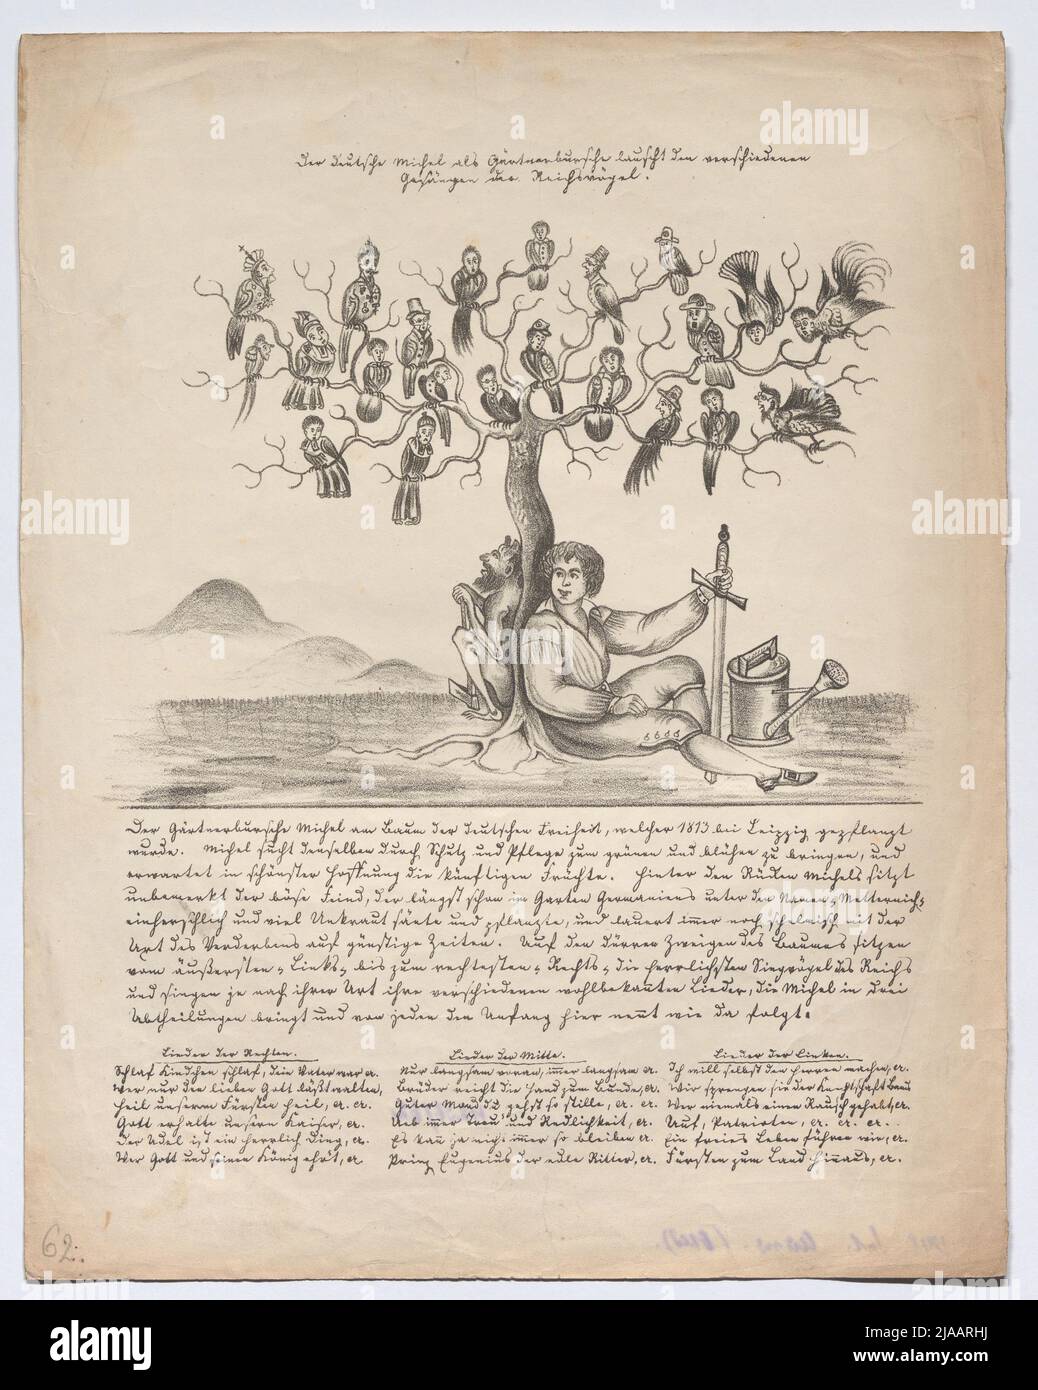 Der deutsche Michel als Gärtnerbursche lauscht den verschiedenen
Gesängen der Reichsvögel.
Der Gärtnerbursche Michel am Baum der deutschen Freiheit, welcher 1813 bei Leipzig gepflanzt
wurde. Michel sucht denselben durch Schutz und Pflege zum grünen und blühen zu bringen, und
erwartet in schönster Hoffnung die künftigen Früchte. Hinter dem Rücken Michels sitzt
unbemerkt der böse Feind, der längst schon im Garten Germaniens unter dem Namen „Metternich“
einherschlich und viel Unkraut säete und pflanzte, und lauert immer noch schelmisch mit der
Axt des Verderbens auf günstige Zeiten. Auf den dürren Zweigen des Baumes sitzen
vom äußersten „Links“ bis zum rechtesten „Rechts“ die herrlichsten Singvögel des Reichs
und singen je nach ihrer Art ihre verschiedenen wohlbekannten Lieder, die Michel in drei
Abtheilungen bringt und von jedem den Anfang hier nennt wie da folgt.
Lieder der Rechten.
Schlaf Kindchen schlaf, dein Vater war er.
Wer nur den lieben Gott läßt walten,
Heil unserm Fürsten heil, er. er.
Gott erhalte unsern Kaiser, er.
Der Adel ist ein herrlich Ding, er.
Wer Gott und seinen König ehrt, er
Lieder der Mitte.
Nur langsam voran, immer langsam er.
Brüder reicht die Hand zum Bunde, er.
Guter Mond du gehst so stille, er. er.
Ueb immer Treu' und Redlichkeit, er.
Es kann ja nicht immer so bleiben er.
Prinz Eugenius der edle Ritter, er.
Lieder der Linken.
Ich will selbst den Herren machen, er.
Wir sprengen sie der Knechtschaft
Wer niemals einen Rausch gehabt, er.
Auf, Patrioten, er. er. er.
Ein freies Leben führen wir, er.
Fürsten zum Land hinaus, er.
62.
alamy
Image ID: 2JAARHJ
www.alamy.com